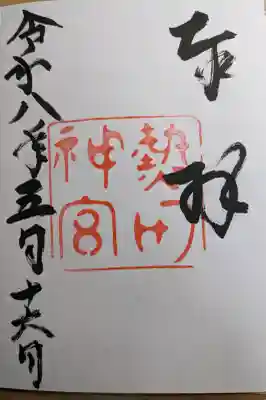 奉拝
熱田
神宮
令和八年五月十六日